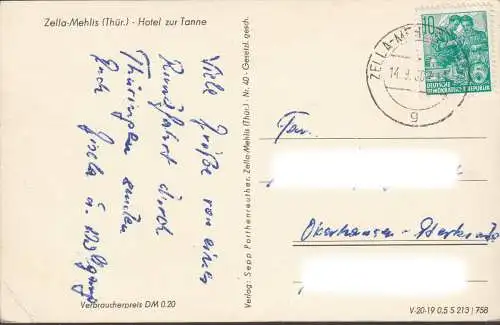 Zella-Mehlis (Thür.) - Hotel zur Tanne
Viele Grüße von einer
Rundfahrt durch
Thüringen senden
Euch Gisela u. Wolfgang
Verbraucherpreis DM 0.20
Verlag: Sepp Parthenreuther, Zella-Mehlis (Thür.) · Nr. 40 · Gesetzl. gesch.
ZELLA-MEHLIS
14.9.
g
10
DEUTSCHE
DEMOKRATISCHE REPUBLIK
Fam.
Oberhausen - Sterkrade
V-20-19 0,5 S 213 | 758